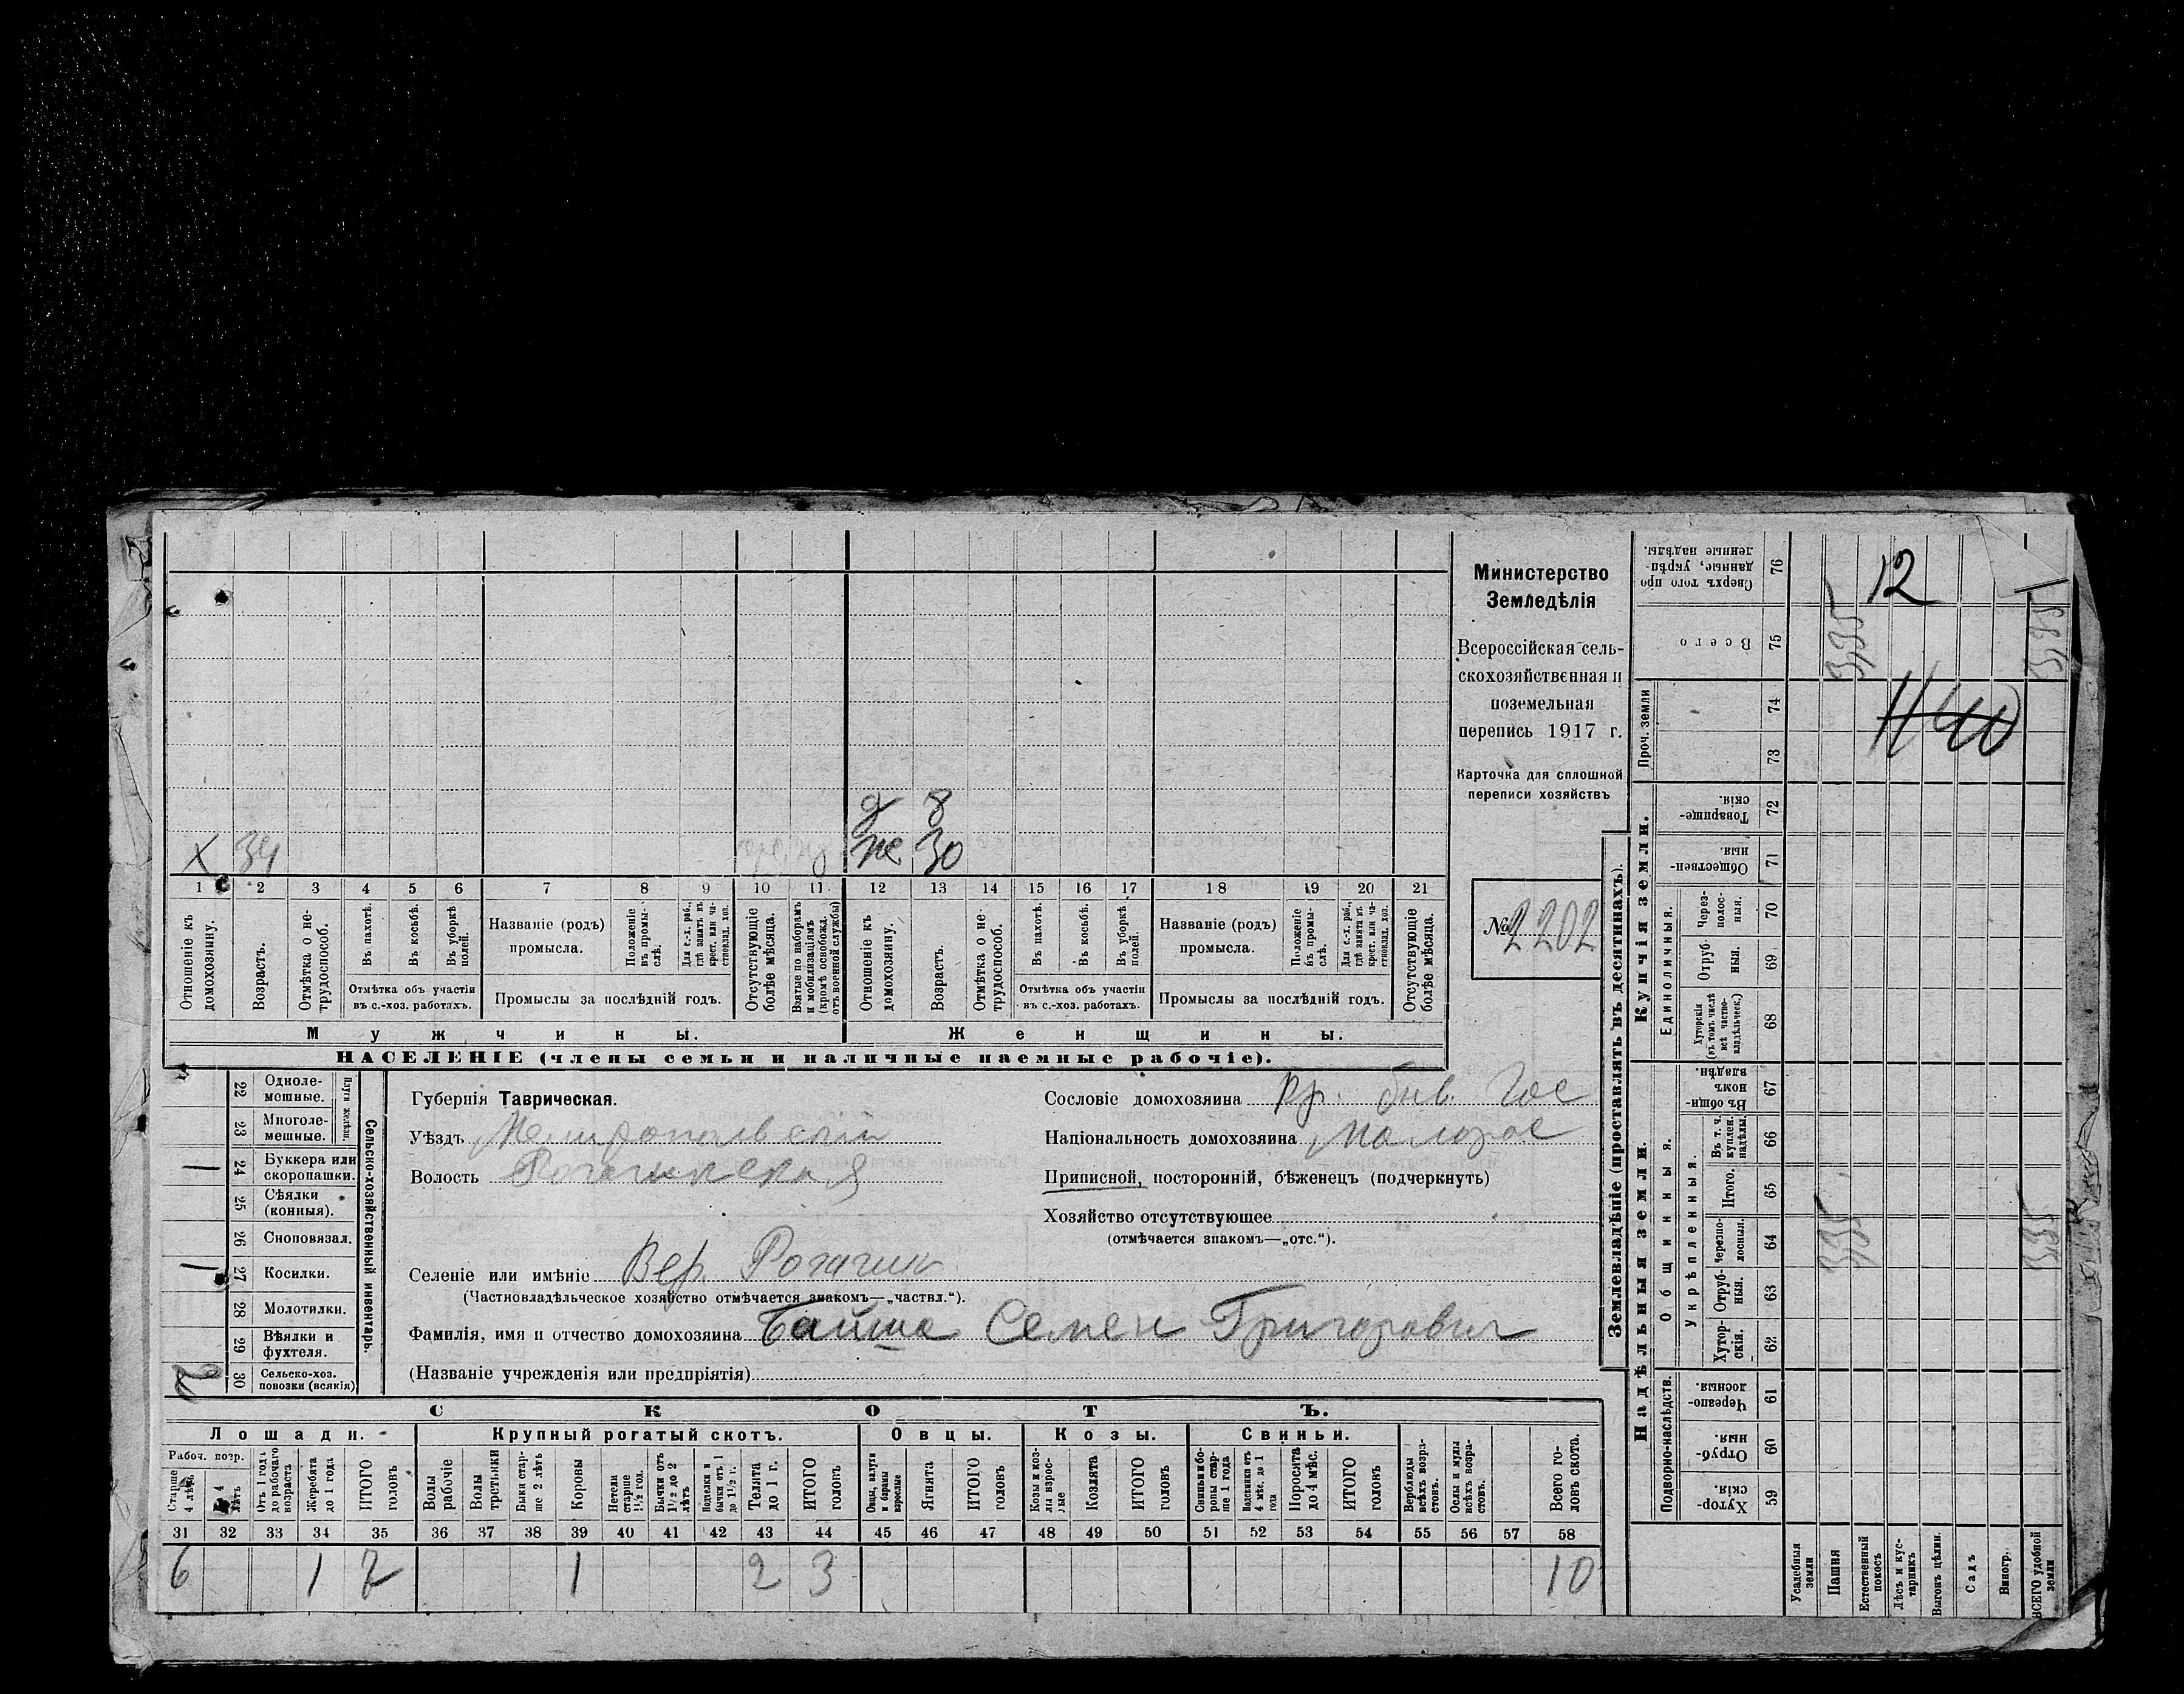 Министерство
Земледѣлія
Всероссійская сель-
скохозяйственная и
поземельная
перепись 1917 г.
Карточка для сплошной
переписи хозяйствъ
№ 2202
д 8
х 34 же 30
1 2 3 4 5 6 7 8 9 10 11 12 13 14 15 16 17 18 19 20 21
Отношеніе къ домохозяину.
Возрастъ.
Отмѣтка о не-трудоспособ.
Въ пахотѣ.
Въ косьбѣ.
Въ уборкѣ полей.
Отмѣтка объ участіи
въ с.-хоз. работахъ.
Названіе (родъ)
промысла.
Положеніе въ промы-слѣ.
Для с.-х. раб., гдѣ занятъ въ крест. или ча-стновлад. хоз.
Промыслы за послѣдній годъ.
Отсутствующіе болѣе мѣсяца.
Взятые по наборамъ и мобилизаціямъ (кромѣ освобожд. отъ военной службы)
Отношеніе къ домохозяину.
Возрастъ.
Отмѣтка о не-трудоспособ.
Въ пахотѣ.
Въ косьбѣ.
Въ уборкѣ полей.
Отмѣтка объ участіи
въ с.-хоз. работахъ.
Названіе (родъ)
промысла.
Положеніе въ промы-слѣ.
Для с.-х. раб., гдѣ занята въ крест. или ча-стновлад. хоз.
Промыслы за послѣдній годъ.
Отсутствующіе болѣе мѣсяца.
Мужчины. Женщины.
НАСЕЛЕНІЕ (члены семьи и наличные наемные рабочіе).
Сельско-хозяйственный инвентарь.
Плуги желѣзн.
22 Одноле-мешные.
23 Многоле-мешные.
1 24 Буккера или скоропашки.
25 Сѣялки (конныя).
26 Сноповязал.
1 27 Косилки.
28 Молотилки.
29 Вѣялки и фухтеля.
2 30 Сельско-хоз. повозки (всякія)
Губернія Таврическая.
Уѣздъ Мелитопольскій
Волость Рогачикская
Селеніе или имѣніе Вер. Рогачик
(Частновладѣльческое хозяйство отмѣчается знакомъ—„частвл.“).
Фамилія, имя и отчество домохозяина Байша Семен Григорович
(Названіе учрежденія или предпріятія)
Сословіе домохозяина кр. быв. Гос
Національность домохозяина малорос
Приписной, посторонній, бѣженецъ (подчеркнуть)
Хозяйство отсутствующее
(отмѣчается знакомъ—„отс.“).
СКОТЪ.
Лошади. Крупный рогатый скотъ. Овцы. Козы. Свиньи.
Рабоч. возр.
Старше 4 лѣтъ
До 4 лѣтъ
Отъ 1 года до рабочаго возраста
Жеребята до 1 года
ИТОГО головъ
Волы рабочіе
Волы третьяки
Быки стар-ше 2 лѣтъ
Коровы
Нетели старше 1½ год.
Бычки отъ 1½ до 2 лѣтъ
Подтелки и бычки отъ 1 до 1½ г.
Телята до 1 г.
ИТОГО головъ
Овцы, валухи и бараны взрослые
Ягнята
ИТОГО головъ
Козы и коз-лы взрос-лые
Козлята
ИТОГО головъ
Свиньи и бо-ровы стар-ше 1 года
Подсвинки отъ 4 мѣс. до 1 года
Поросята до 4 мѣс.
ИТОГО головъ
Верблюды всѣхъ возра-стовъ.
Ослы и мулы всѣхъ возра-стовъ.
Всего го-ловъ скота.
31 32 33 34 35 36 37 38 39 40 41 42 43 44 45 46 47 48 49 50 51 52 53 54 55 56 57 58
6 1 7 1 2 3 10
Землевладѣніе (проставлять въ десятинахъ).
Надѣльныя земли. Купчія земли. Проч. земли
Подворно-наслѣдств. Общинныя. Единоличныя.
Укрѣпленныя.
Хутор-скія. 59
Отруб-ныя. 60
Черезпо-лосныя. 61
Хутор-скія. 62
Отруб-ныя. 63
Черезпо-лосныя. 64
Итого. 65
Въ т. ч. куплен. надѣлы. 66
Въ общин-номъ владѣн. 67
Хуторскія (въ томъ числѣ всѣ частно-владѣльческ.) 68
Отруб-ныя. 69
Через-полос-ныя. 70
Обществен-ныя. 71
Товарище-скія. 72
73 74
Всего 75
Сверхъ того про-данные, укрѣп-ленные надѣлы. 76
Усадебныя земли
Пашня
Естественный покосъ
Лѣсъ и кус-тарникъ
Выгонъ цѣлин.
Садъ
Виногр.
ВСЕГО удобной земли
12